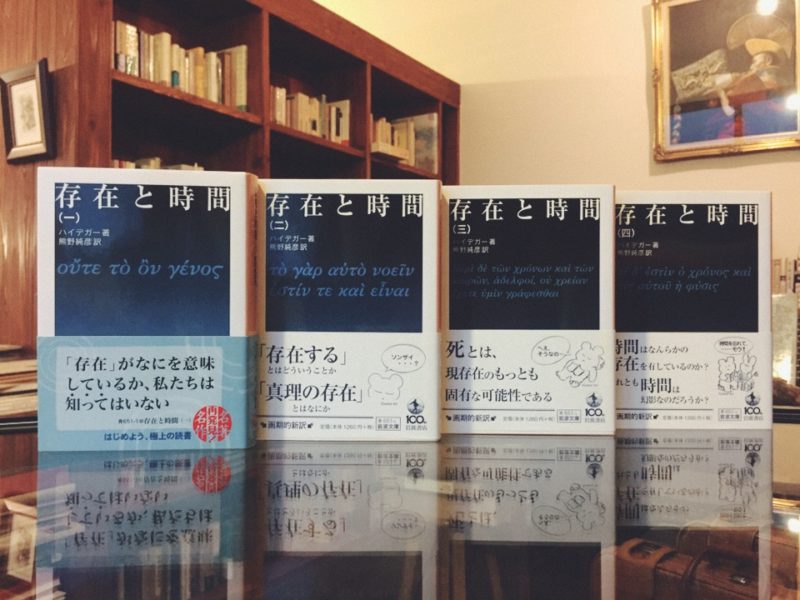 存在と時間
(一)
ハイデガー著
熊野純彦訳
οὔτε τὸ ὂν γένος
「存在」がなにを意味
しているか、私たちは
知ってはいない
青651-1 存在と時間(一)
はじめよう、極上の読書
存在と時間
(二)
ハイデガー著
熊野純彦訳
τὸ γὰρ αὐτὸ νοεῖν
ἐστίν τε καὶ εἶναι
「存在する」
とはどういうことか
「真理の存在」
とはなにか
ソンザイ
・・・・?
画期的新訳
岩波文庫
100
岩波書店
存在と時間
(三)
ハイデガー著
熊野純彦訳
περὶ δὲ τῶν χρόνων καὶ τῶν
καιρῶν, ἀδελφοί, οὐ χρείαν
ἔχετε ὑμῖν γράφεσθαι
死とは、
現存在のもっとも
固有な可能性である
へぇ、
そうなの…
画期的新訳
岩波文庫
100
岩波書店
存在と時間
(四)
ハイデガー著
熊野純彦訳
ἐστὶν ὁ χρόνος καὶ
αὐτοῦ ἡ φύσις
時間はなんらかの
存在を有しているのか?
それとも時間は
幻影なのだろうか?
画期的新訳
岩波文庫
100
岩波書店